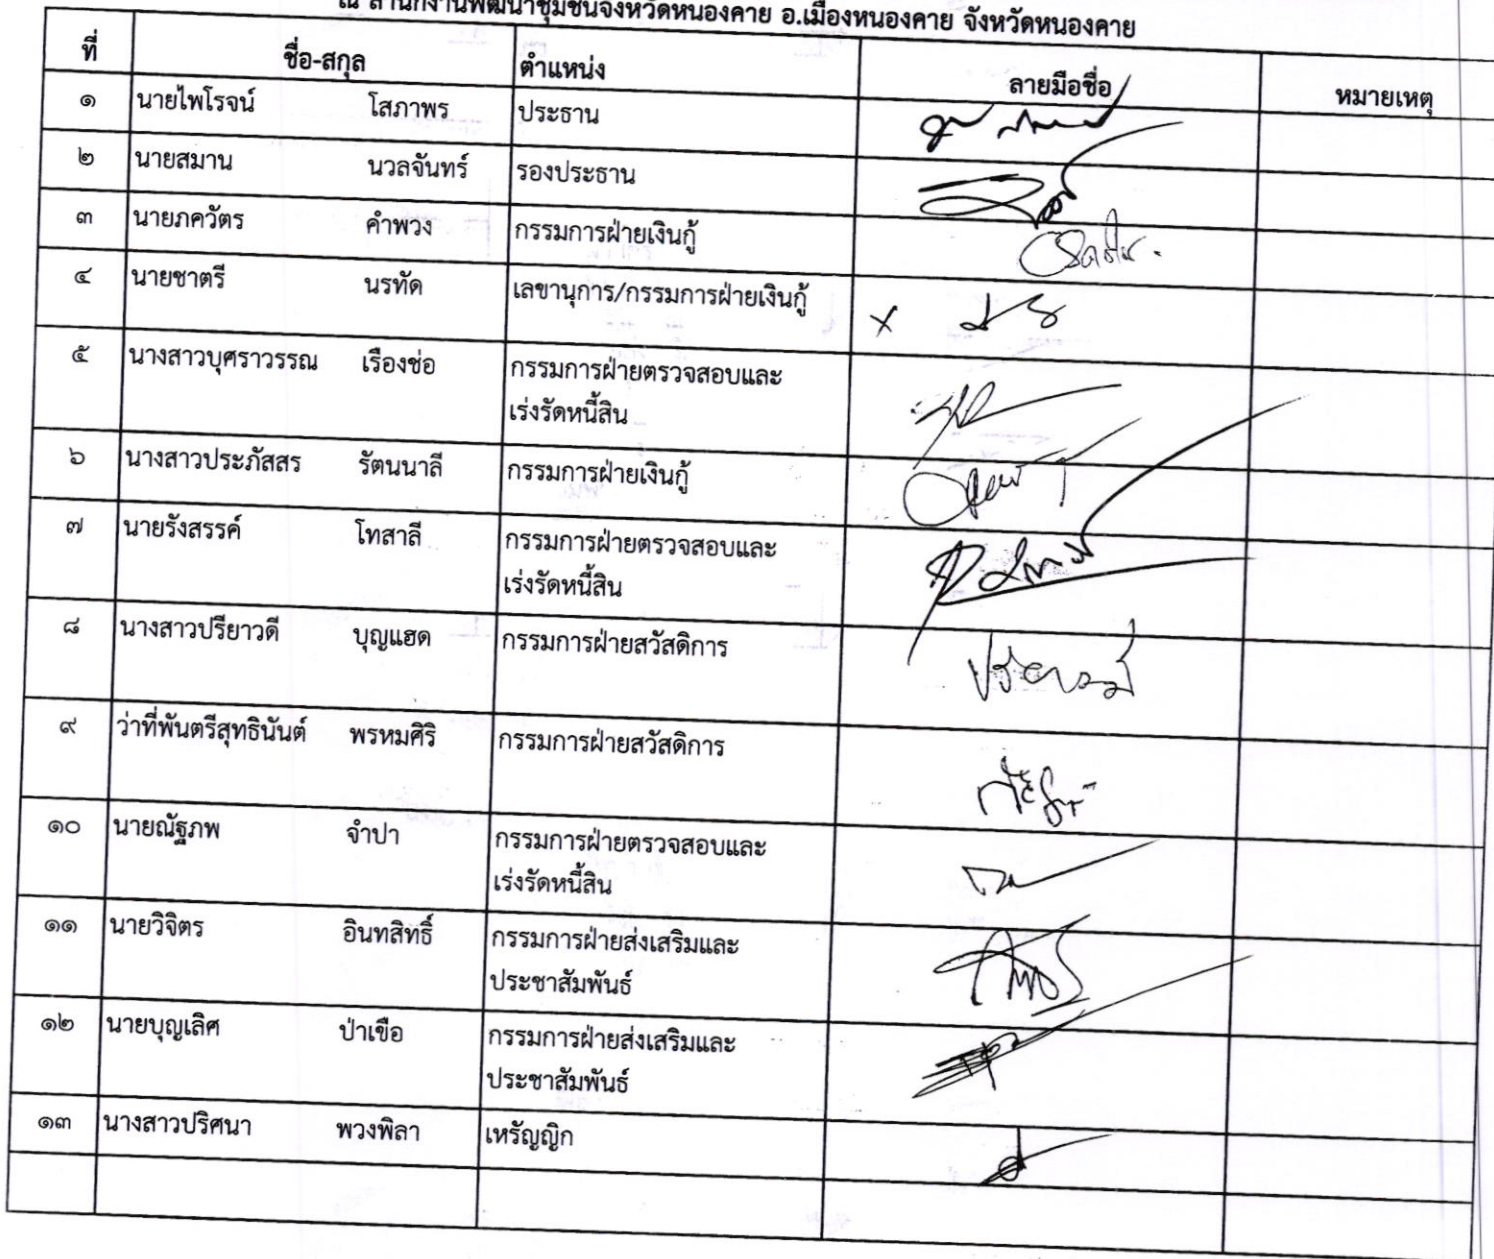 ณ สำนักงานพัฒนาชุมชนจังหวัดหนองคาย อ.เมืองหนองคาย จังหวัดหนองคาย
ที่ ชื่อ-สกุล ตำแหน่ง ลายมือชื่อ หมายเหตุ
๑ นายไพโรจน์ โสภาพร ประธาน
๒ นายสมาน นวลจันทร์ รองประธาน
๓ นายภควัตร คำพวง กรรมการฝ่ายเงินกู้
๔ นายชาตรี นรทัด เลขานุการ/กรรมการฝ่ายเงินกู้
๕ นางสาวบุศราวรรณ เรืองช่อ กรรมการฝ่ายตรวจสอบและ
เร่งรัดหนี้สิน
๖ นางสาวประภัสสร รัตนนาลี กรรมการฝ่ายเงินกู้
๗ นายรังสรรค์ โทสาลี กรรมการฝ่ายตรวจสอบและ
เร่งรัดหนี้สิน
๘ นางสาวปรียาวดี บุญแฮด กรรมการฝ่ายสวัสดิการ
๙ ว่าที่พันตรีสุทธินันต์ พรหมศิริ กรรมการฝ่ายสวัสดิการ
๑๐ นายณัฐภพ จำปา กรรมการฝ่ายตรวจสอบและ
เร่งรัดหนี้สิน
๑๑ นายวิจิตร อินทสิทธิ์ กรรมการฝ่ายส่งเสริมและ
ประชาสัมพันธ์
๑๒ นายบุญเลิศ ป่าเขือ กรรมการฝ่ายส่งเสริมและ
ประชาสัมพันธ์
๑๓ นางสาวปริศนา พวงพิลา เหรัญญิก